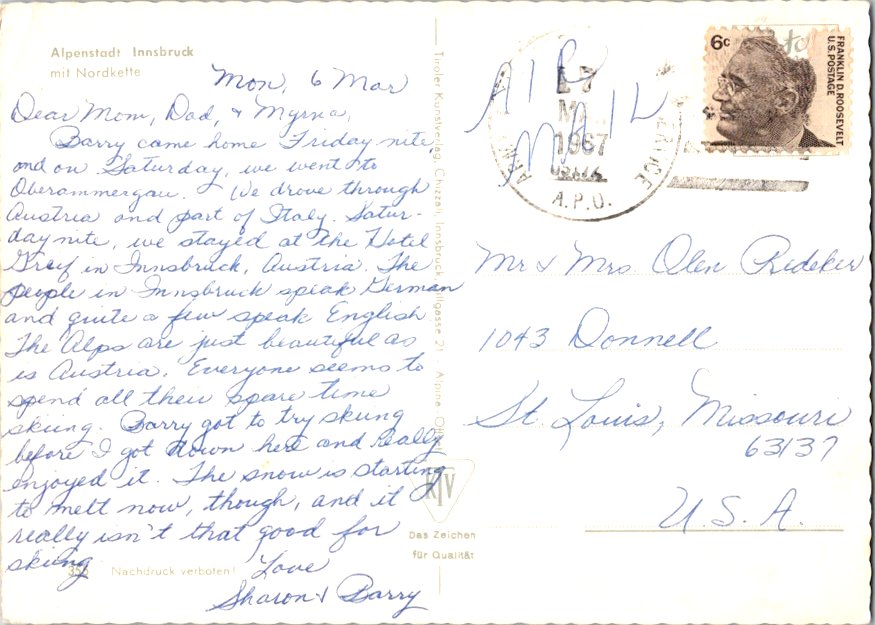 Alpenstadt Innsbruck
mit Nordkette
Mon, 6 Mar
Dear Mom, Dad, & Myrna,
Barry came home Friday nite
and on Saturday, we went to
Oberammergau. We drove through
Austria and part of Italy. Satur-
day nite, we stayed at the Hotel
Greif in Innsbruck, Austria. The
people in Innsbruck speak German
and quite a few speak English
The Alps are just beautiful as
is Austria. Everyone seems to
spend all their spare time
skiing. Barry got to try skiing
before I got down here and really
enjoyed it. The snow is starting
to melt now, though, and it
really isn't that good for
skiing
Love
Sharon & Barry
356 Nachdruck verboten!
Tiroler Kunstverlag Chizzali, Innsbruck
21 Alpine
KTV
Das Zeichen
für Qualität
AIR
MAIL
1967
A.P.O.
SERVICE
6c
to
FRANKLIN D. ROOSEVELT
U.S. POSTAGE
Mr & Mrs Olen Redeker
1043 Donnell
St. Louis, Missouri
63137
U.S.A.